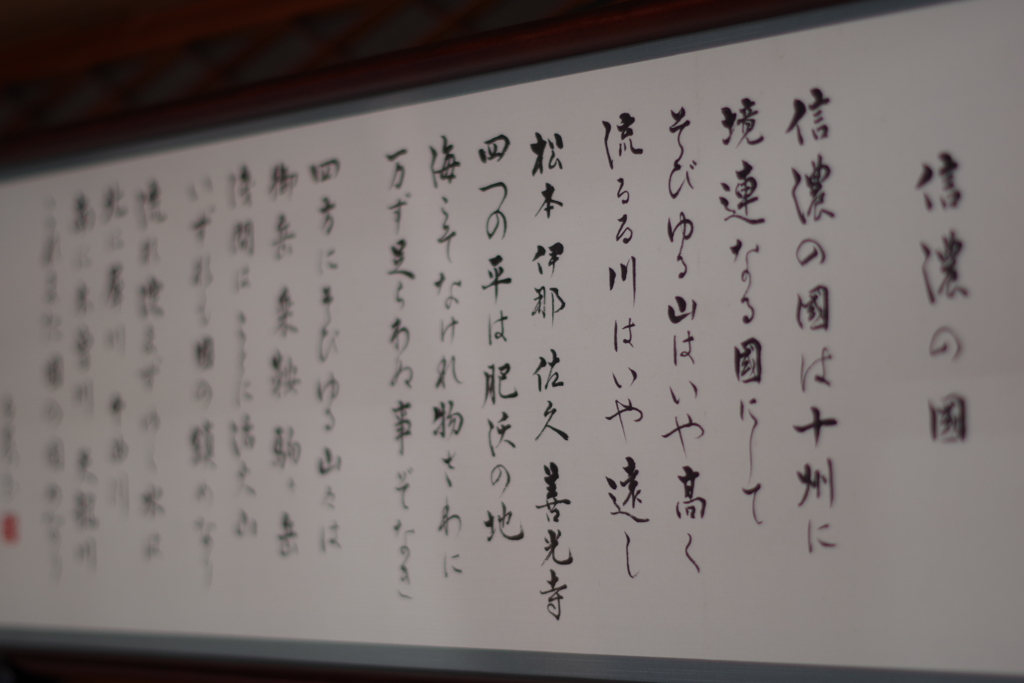 信濃の國
信濃の國は十州に
境連なる國にして
そびゆる山はいや高く
流るる川はいや遠し
松本 伊那 佐久 善光寺
四つの平は肥沃の地
海こそなけれ物さわに
万ず足らわぬ事ぞなき
四方にそびゆる山々は
御岳 乗鞍 駒ヶ岳
浅間はことに活火山
いずれも國の鎮めなり
流れ淀まずゆく水は
北に犀川 千曲川
南に木曽川 天竜川
これまた國の固めなり